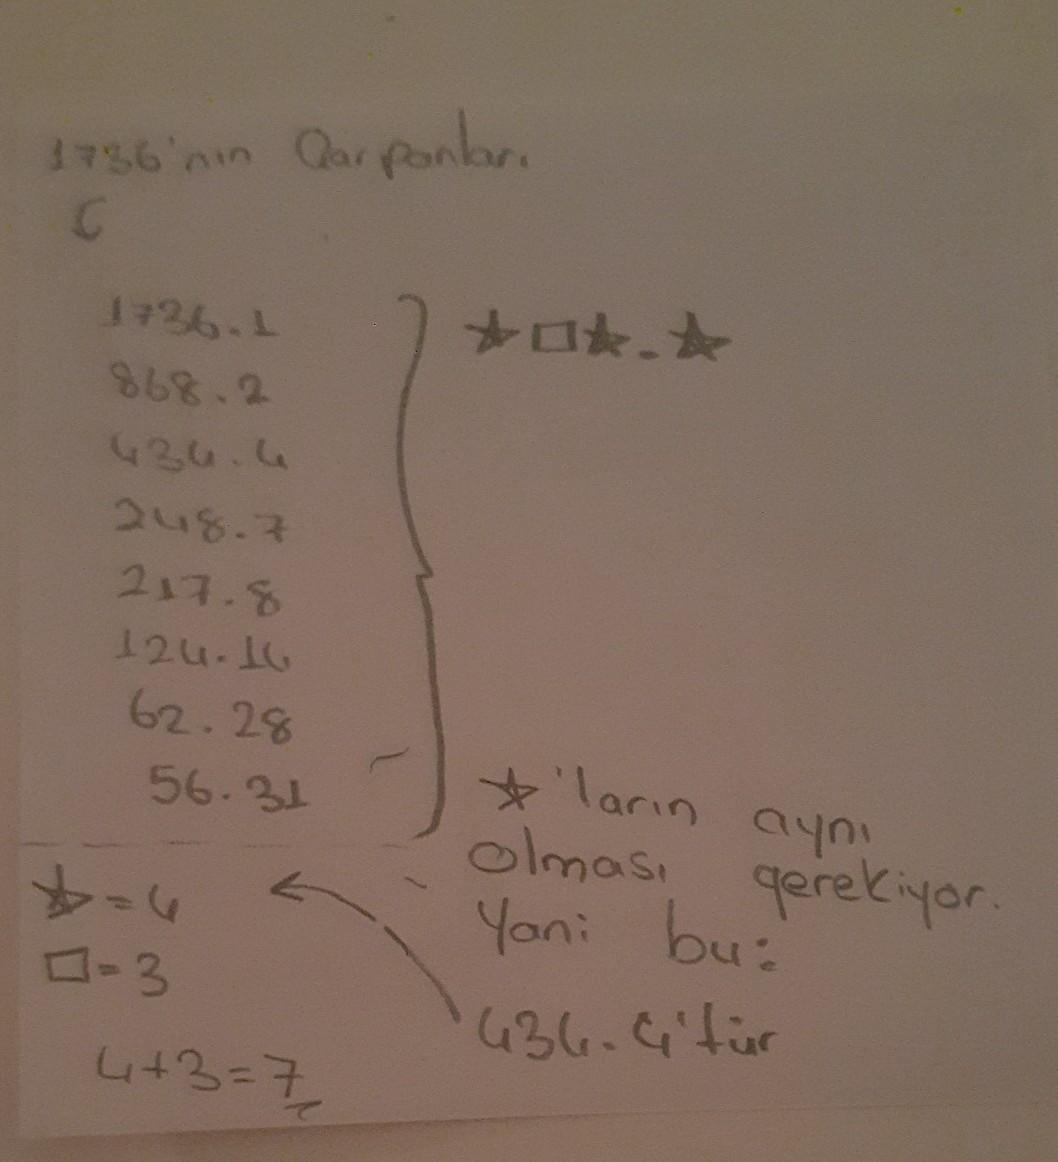 1736'nın Qarpanları
1736.1
868.2
434.4
248.7
217.8
124.14
62.28
56.31
★□★.★
★'ların aynı
olması gerekiyor.
Yani bu:
434.4'tür
★=4
□=3
4+3=7